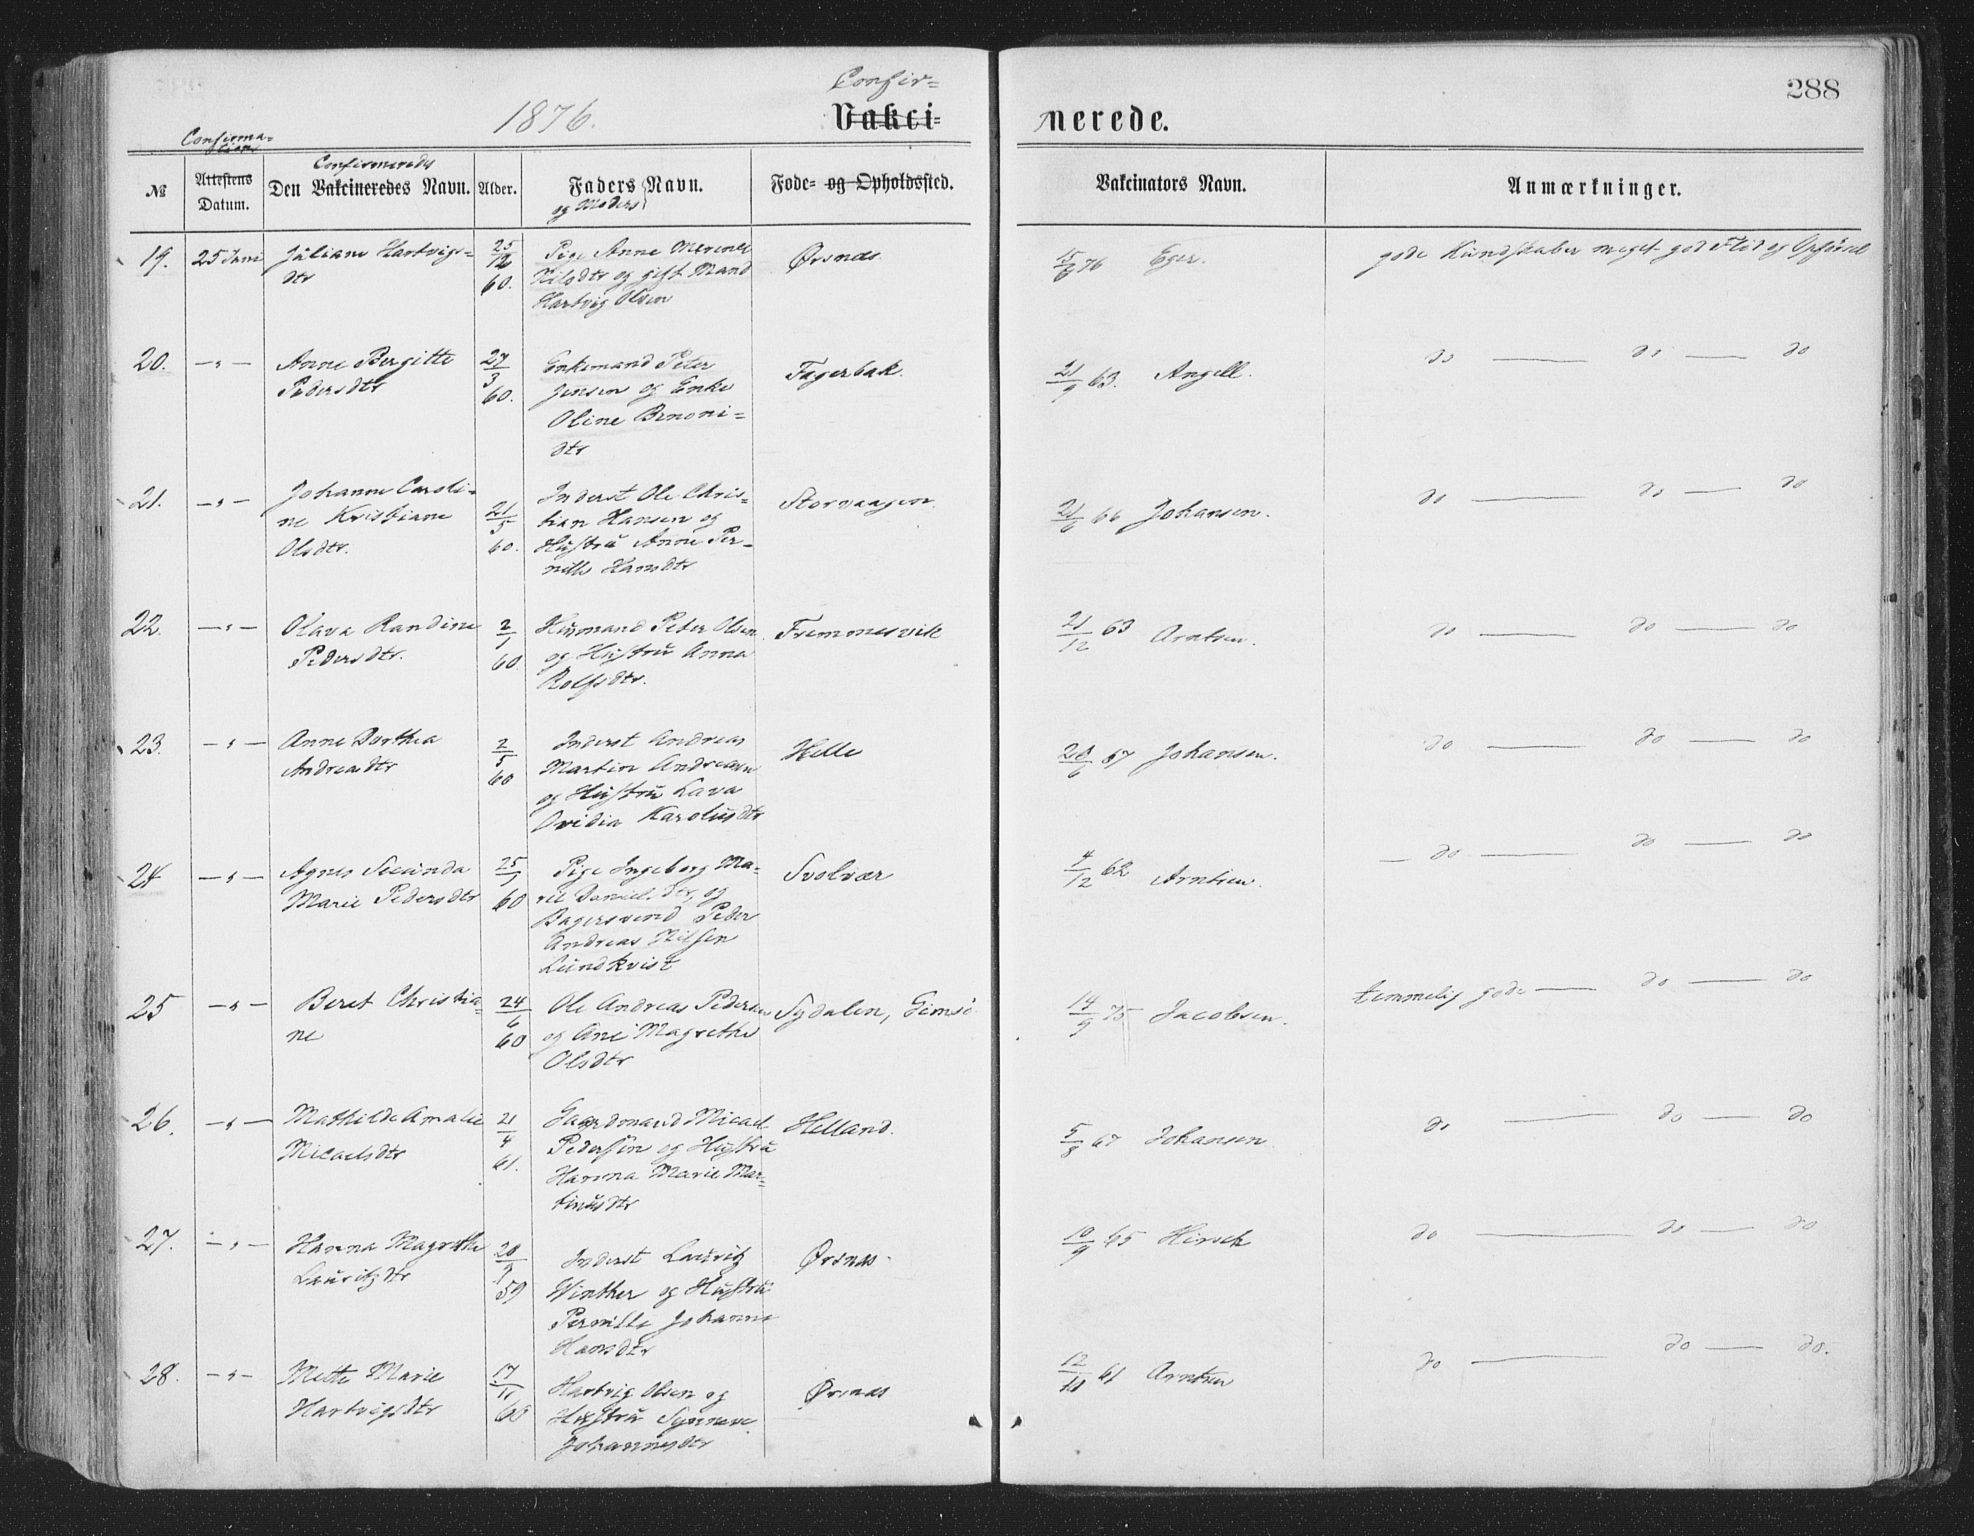 288
1876.
Confir=
Vakci=
nerede.
Confirma-
tions
Confirmeredes
№ Attestens Datum. Den Vakcineredes Navn. Alder. Faders Navn. og Moders Føde- og Opholdssted. Vakcinators Navn. Anmærkninger.
19. 25 Juni Juliane Hartvigs= 25/12 Pige Anne Ørsnes 15/6 76 Eger. gode Kundskaber meget god Flid og Opførsel
dtr 60. Nilsdtr og gift Mand
Hartvig Olsen
20. —"— Anne Bergitte 27/3 Enkemand Peter Fagerbak. 21/9 63. Angell. do — do — do
Pedersdtr 60. Jensen og Enke
Oline Benoni=
dtr
21. —"— Johanne Caroli= 21/5 Inderst Ole Chris= Storvaagen. 21/6 66 Johansen. do — do — do
ne Kristiane 60. tian Hansen og
Olsdtr. Hustru Anne Per=
nille Hansdtr
22. —"— Olava Randine 2/1 Husmand Peter Olsen Fremmesvik 21/12 63 Arntsen. do — do — do
Pedersdtr. 60. og Hustru Anna
Rolfsdtr.
23. —"— Anne Dorthea 2/5 Inderst Andreas Helle 28/6 67 Johansen. do — do — do
Andreasdtr 60 Martin Andreasen
og Hustru Lava
Ovidia Karolusdtr
24 —"— Agnes Secunda 25/1 Pige Ingeborg Ma- Svolvær 4/12 62 Arntsen. — do — do — do
Marie Pedersdtr 60 rie Danielsdtr, og
Bagersvend Peder
Andreas Nilsen
Lundkvist
25 —"— Beret Christia- 24/6 Ole Andreas Pedersen Sydalen, Gimsø 14/9 75 Jacobsen. temmelig gode — do — do
ne 60 og Ane Magrethe
Olsdtr
26. —"— Mathilde Amalie 21/4 Gaardmand Micael Helland. 5/8 67 Johansen. do — do — do
Micaelsdtr 61. Pedersen og Hustru
Hanna Marie Mar-
tinusdtr
27. —"— Hanna Magrethe 20/9 Inderst Lauritz Ørsnes. 10/9 65 Hirsch do — do — do
Lauritzdtr 59 Winther og Hustru
Pernille Johanna
Hansdtr
28. —"— Mette Marie 17/11 Hartvig Olsen og Ørsnes 12/10 61 Arntsen do — do — do.
Hartvigsdtr 60 Hustru Synneve
Johannesdtr